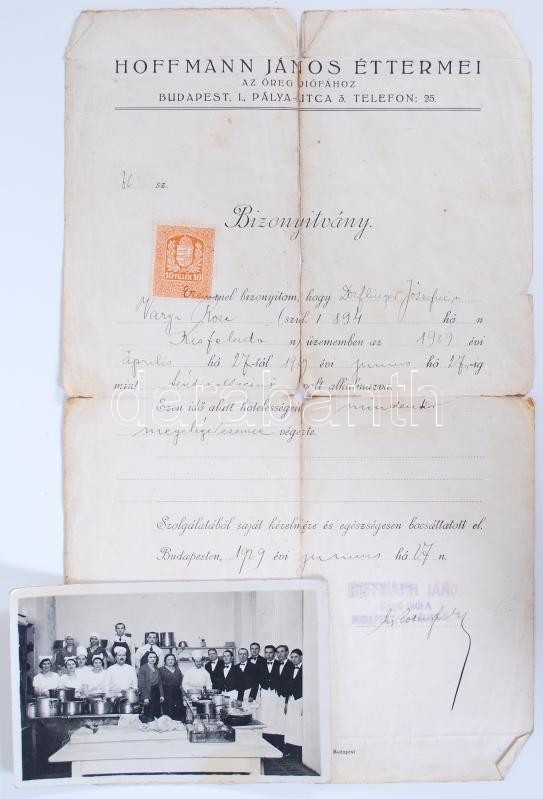 HOFFMANN JÁNOS ÉTTERMEI
AZ ÖREG DIÓFÁHOZ
BUDAPEST, I., PÁLYA-UTCA 3. TELEFON: 25.
76 sz.
Bizonyitvány.
10 FILLÉR 10
Ezennel bizonyitom, hogy Dorflinger Józsefné
Varga Róza (szül. 1894 hó n
Kisfaludon n) üzememben az 1929 évi
április hó 27-től 1929 évi junius hó 27-ig
mint volt alkalmazva.
Ezen idő alatt kötelességeit mindenkor
megelégedésemre végezte.
Szolgálatából saját kérelmére és egészségesen bocsáttatott el.
Budapesten, 1929 évi junius hó 27 n.
HOFFMANN JÁNO
ÖREG DIÓFA
BUDAPEST
Budapest
darabanth